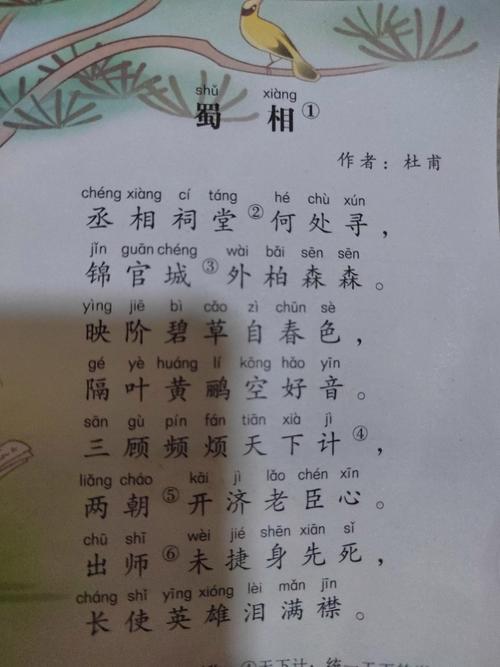 shǔ xiàng
蜀相①
作者：杜甫
chéng xiàng cí táng hé chù xún
丞相祠堂②何处寻，
jǐn guān chéng wài bǎi sēn sēn
锦官城③外柏森森。
yìng jiē bì cǎo zì chūn sè
映阶碧草自春色，
gé yè huáng lí kōng hǎo yīn
隔叶黄鹂空好音。
sān gù pín fán tiān xià jì
三顾频烦天下计④，
liǎng cháo kāi jì lǎo chén xīn
两朝⑤开济老臣心。
chū shī wèi jié shēn xiān sǐ
出师⑥未捷身先死，
cháng shǐ yīng xióng lèi mǎn jīn
长使英雄泪满襟。
④天下计：统一天下